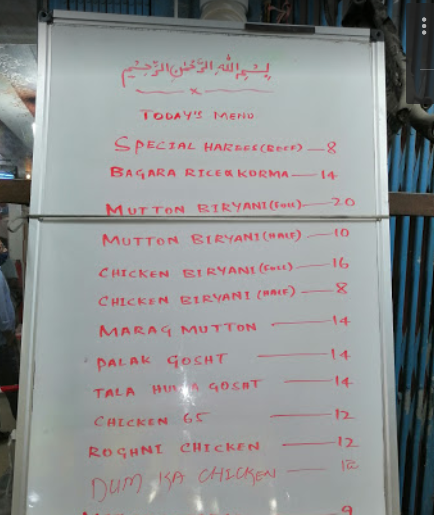 بِسْمِ اللهِ الرَّحْمٰنِ الرَّحِيْمِ
TODAY'S MENU
SPECIAL HAREES (BEEF) — 8
BAGARA RICE & KORMA — 14
MUTTON BIRYANI (FULL) — 20
MUTTON BIRYANI (HALF) — 10
CHICKEN BIRYANI (FULL) — 16
CHICKEN BIRYANI (HALF) — 8
MARAG MUTTON — 14
PALAK GOSHT — 14
TALA GOSHT — 14
CHICKEN 65 — 12
ROGHNI CHICKEN — 12
DUM KA CHICKEN —
9